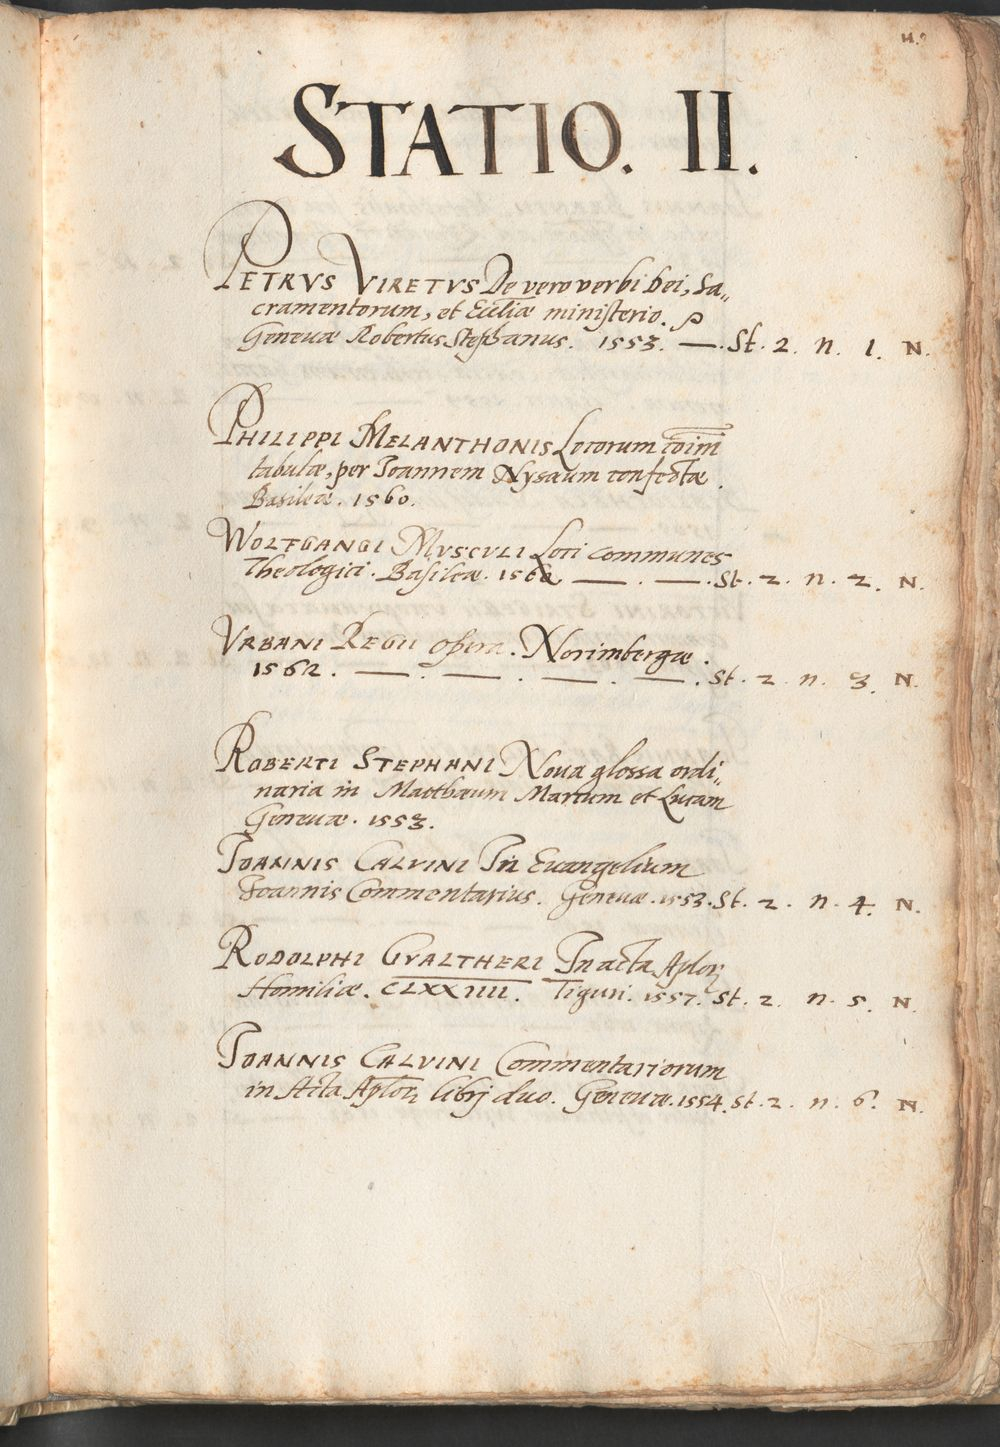 STATIO. II.
PETRVS VIRETVS De vero verbi Dei, Sa„
cramentorum, et Eccliæ ministerio.
Geneuæ Robertus Stephanus. 1553. —. St. 2. n. 1. N.
PHILIPPI MELANTHONIS Locorum coim
tabulæ, per Joannem Nysæum confectæ.
Basileæ. 1560.
WOLFGANGI MVSCVLI Loci communes
Theologici. Basileæ. 1560 — . — . St. 2. n. 2. N.
VRBANI REGII opera. Norimbergæ.
1562. — . — . — . — . St. 2. n. 3. N.
ROBERTI STEPHANI Noua glossa ordi„
naria in Matthæum Marcum et Lucam
Geneuæ. 1553.
IOANNIS CALVINI In Euangelium
Joannis Commentarius. Geneuæ. 1553. St. 2. n. 4. N.
RODOLPHI GVALTHERI In acta Aplor
Homiliæ. CLXXIIII. Tiguri. 1557. St. 2. n. 5. N.
IOANNIS CALVINI Commentariorum
in Acta Aplor libri duo. Geneuæ. 1554. St. 2. n. 6. N.